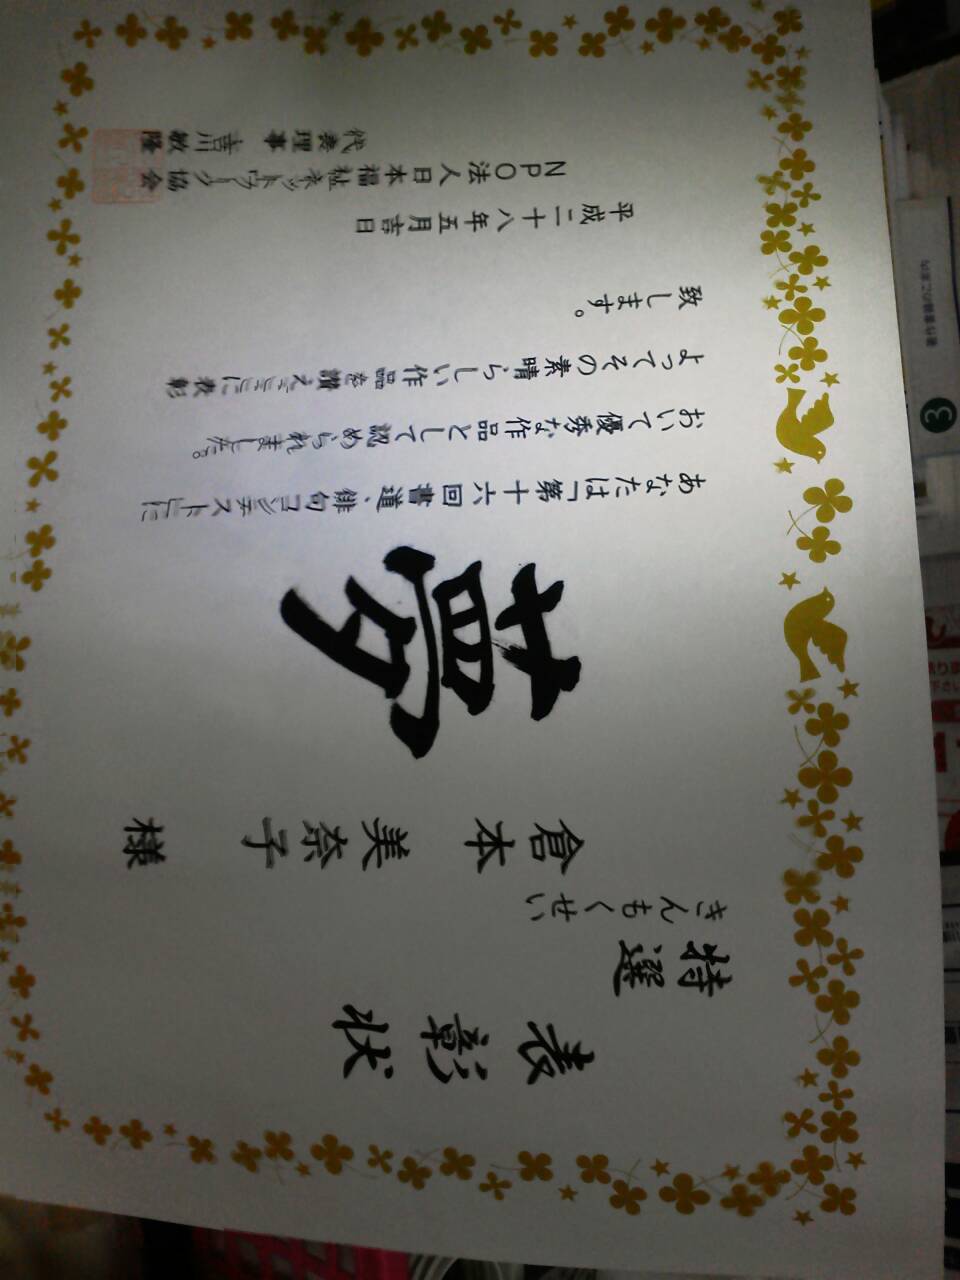 表彰状
特選
きんもくせい
倉本 美奈子 様
夢
あなたは「第十六回書道、俳句コンテスト」に
おいて優秀な作品として認められました。
よってその素晴らしい作品を讃えここに表彰
致します。
平成二十八年五月吉日
NPO法人日本福祉ネットワーク協会
代表理事 吉川敏隆
3